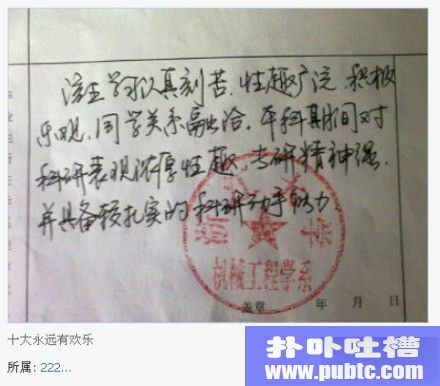 该生学习认真刻苦，性趣广泛，积极
乐观，同学关系融洽，本科期间对
科研表现浓厚性趣，专研精神强，
并具备较扎实的科研动手能力
机械工程学系
盖章 年 月 日
十大永远有欢乐
所属: 222...
扑卟吐槽
www.pubtc.com